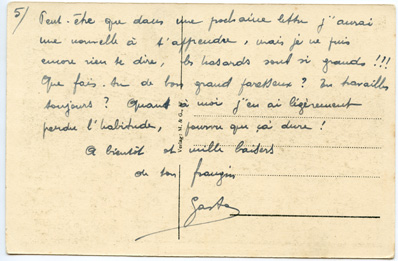 5/ Peut-être que dans une prochaine lettre j'aurai
une nouvelle à t'apprendre, mais je ne puis
encore rien te dire, les hasards sont si grands !!!
Que fais-tu de bon grand paresseux ? Tu travailles
toujours ? Quant à moi j'en ai légèrement
perdu l'habitude, pourvu que ça dure !
A bientôt et mille baisers
de ton frangin
Gaston